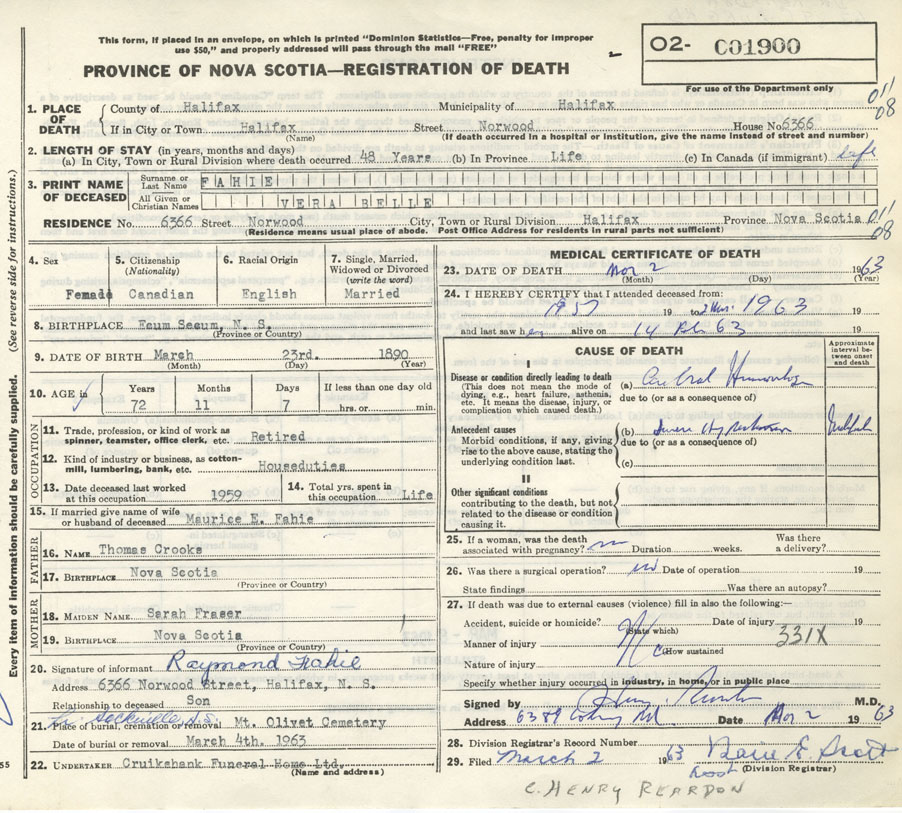 This form, if placed in an envelope, on which is printed "Dominion Statistics—Free, penalty for improper
use $50," and properly addressed will pass through the mail "FREE"
O2- C01900
PROVINCE OF NOVA SCOTIA—REGISTRATION OF DEATH
For use of the Department only
1. PLACE OF DEATH { County of Halifax Municipality of Halifax 011
If in City or Town Halifax Street Norwood House No. 6366 08
(Name) (If death occurred in a hospital or institution, give the name instead of street and number)
2. LENGTH OF STAY (in years, months and days)
(a) In City, Town or Rural Division where death occurred 48 Years (b) In Province Life (c) In Canada (if immigrant) Life
3. PRINT NAME OF DECEASED
Surname or Last Name FAHIE
All Given or Christian Names VERA BELLE
RESIDENCE No. 6366 Street Norwood City, Town or Rural Division Halifax Province Nova Scotia 011
(Residence means usual place of abode. Post Office Address for residents in rural parts not sufficient) 08
(See reverse side for instructions.)
Every item of information should be carefully supplied.
4. Sex 5. Citizenship (Nationality) 6. Racial Origin 7. Single, Married, Widowed or Divorced (write the word)
Female Canadian English Married
8. BIRTHPLACE Ecum Secum, N. S.
(Province or Country)
9. DATE OF BIRTH March 23rd. 1890
(Month) (Day) (Year)
10. AGE in Years Months Days If less than one day old
72 11 7 hrs. or min.
OCCUPATION
11. Trade, profession, or kind of work as spinner, teamster, office clerk, etc. Retired
12. Kind of industry or business, as cotton-mill, lumbering, bank, etc. Houseduties
13. Date deceased last worked at this occupation 1959 14. Total yrs. spent in this occupation Life
15. If married give name of wife or husband of deceased Maurice E. Fahie
FATHER
16. NAME Thomas Crooks
17. BIRTHPLACE Nova Scotia
(Province or Country)
MOTHER
18. MAIDEN NAME Sarah Fraser
19. BIRTHPLACE Nova Scotia
(Province or Country)
20. Signature of informant Raymond Fahie
Address 6366 Norwood Street, Halifax, N. S.
Relationship to deceased Son
Sackville, N.S.
21. Place of burial, cremation or removal Mt. Olivet Cemetery
Date of burial or removal March 4th. 1963
22. UNDERTAKER Cruikshank Funeral Home Ltd.
(Name and address)
55
MEDICAL CERTIFICATE OF DEATH
23. DATE OF DEATH Mar 2 1963
(Month) (Day) (Year)
24. I HEREBY CERTIFY that I attended deceased from:
1957 19 to 2 Mar 1963 19
and last saw her alive on 14 63 19
CAUSE OF DEATH
Approximate interval between onset and death
I
Disease or condition directly leading to death
(This does not mean the mode of dying, e.g., heart failure, asthenia, etc. It means the disease, injury, or complication which caused death.)
(a) Cerebral Hemorrhage
due to (or as a consequence of)
Antecedent causes
Morbid conditions, if any, giving rise to the above cause, stating the underlying condition last.
(b) Severe Hypertension
due to (or as a consequence of)
(c)
II
Other significant conditions
contributing to the death, but not related to the disease or condition causing it.
25. If a woman, was the death associated with pregnancy? no Duration weeks. Was there a delivery?
26. Was there a surgical operation? no Date of operation 19
State findings Was there an autopsy?
27. If death was due to external causes (violence) fill in also the following:—
Accident, suicide or homicide? Date of injury 19
(State which)
Manner of injury 331X
(How sustained
Nature of injury
Specify whether injury occurred in industry, in home, or in public place
Signed by M.D.
Address 6389 Date Mar 2 1963
28. Division Registrar's Record Number
29. Filed March 2 1963
(Division Registrar)
C. HENRY REARDON